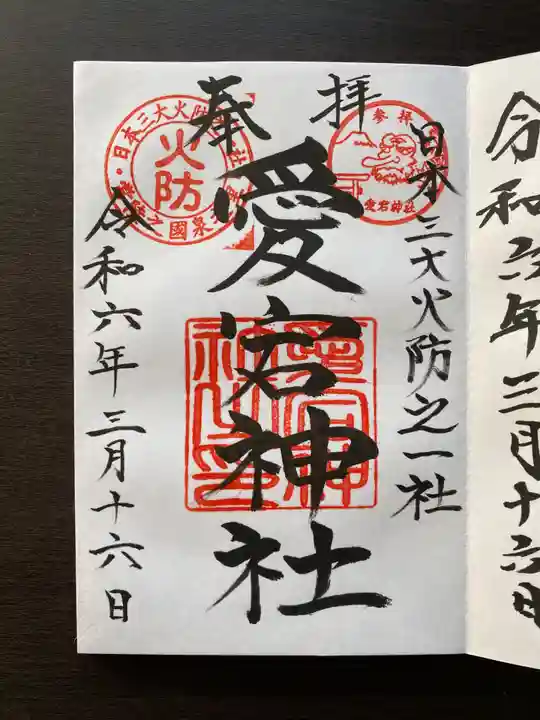 令和六年三月十六日
奉拝
日本三大火防之一社
愛宕神社
令和六年三月十六日
参拝
愛宕神社
日本三大火防
火防